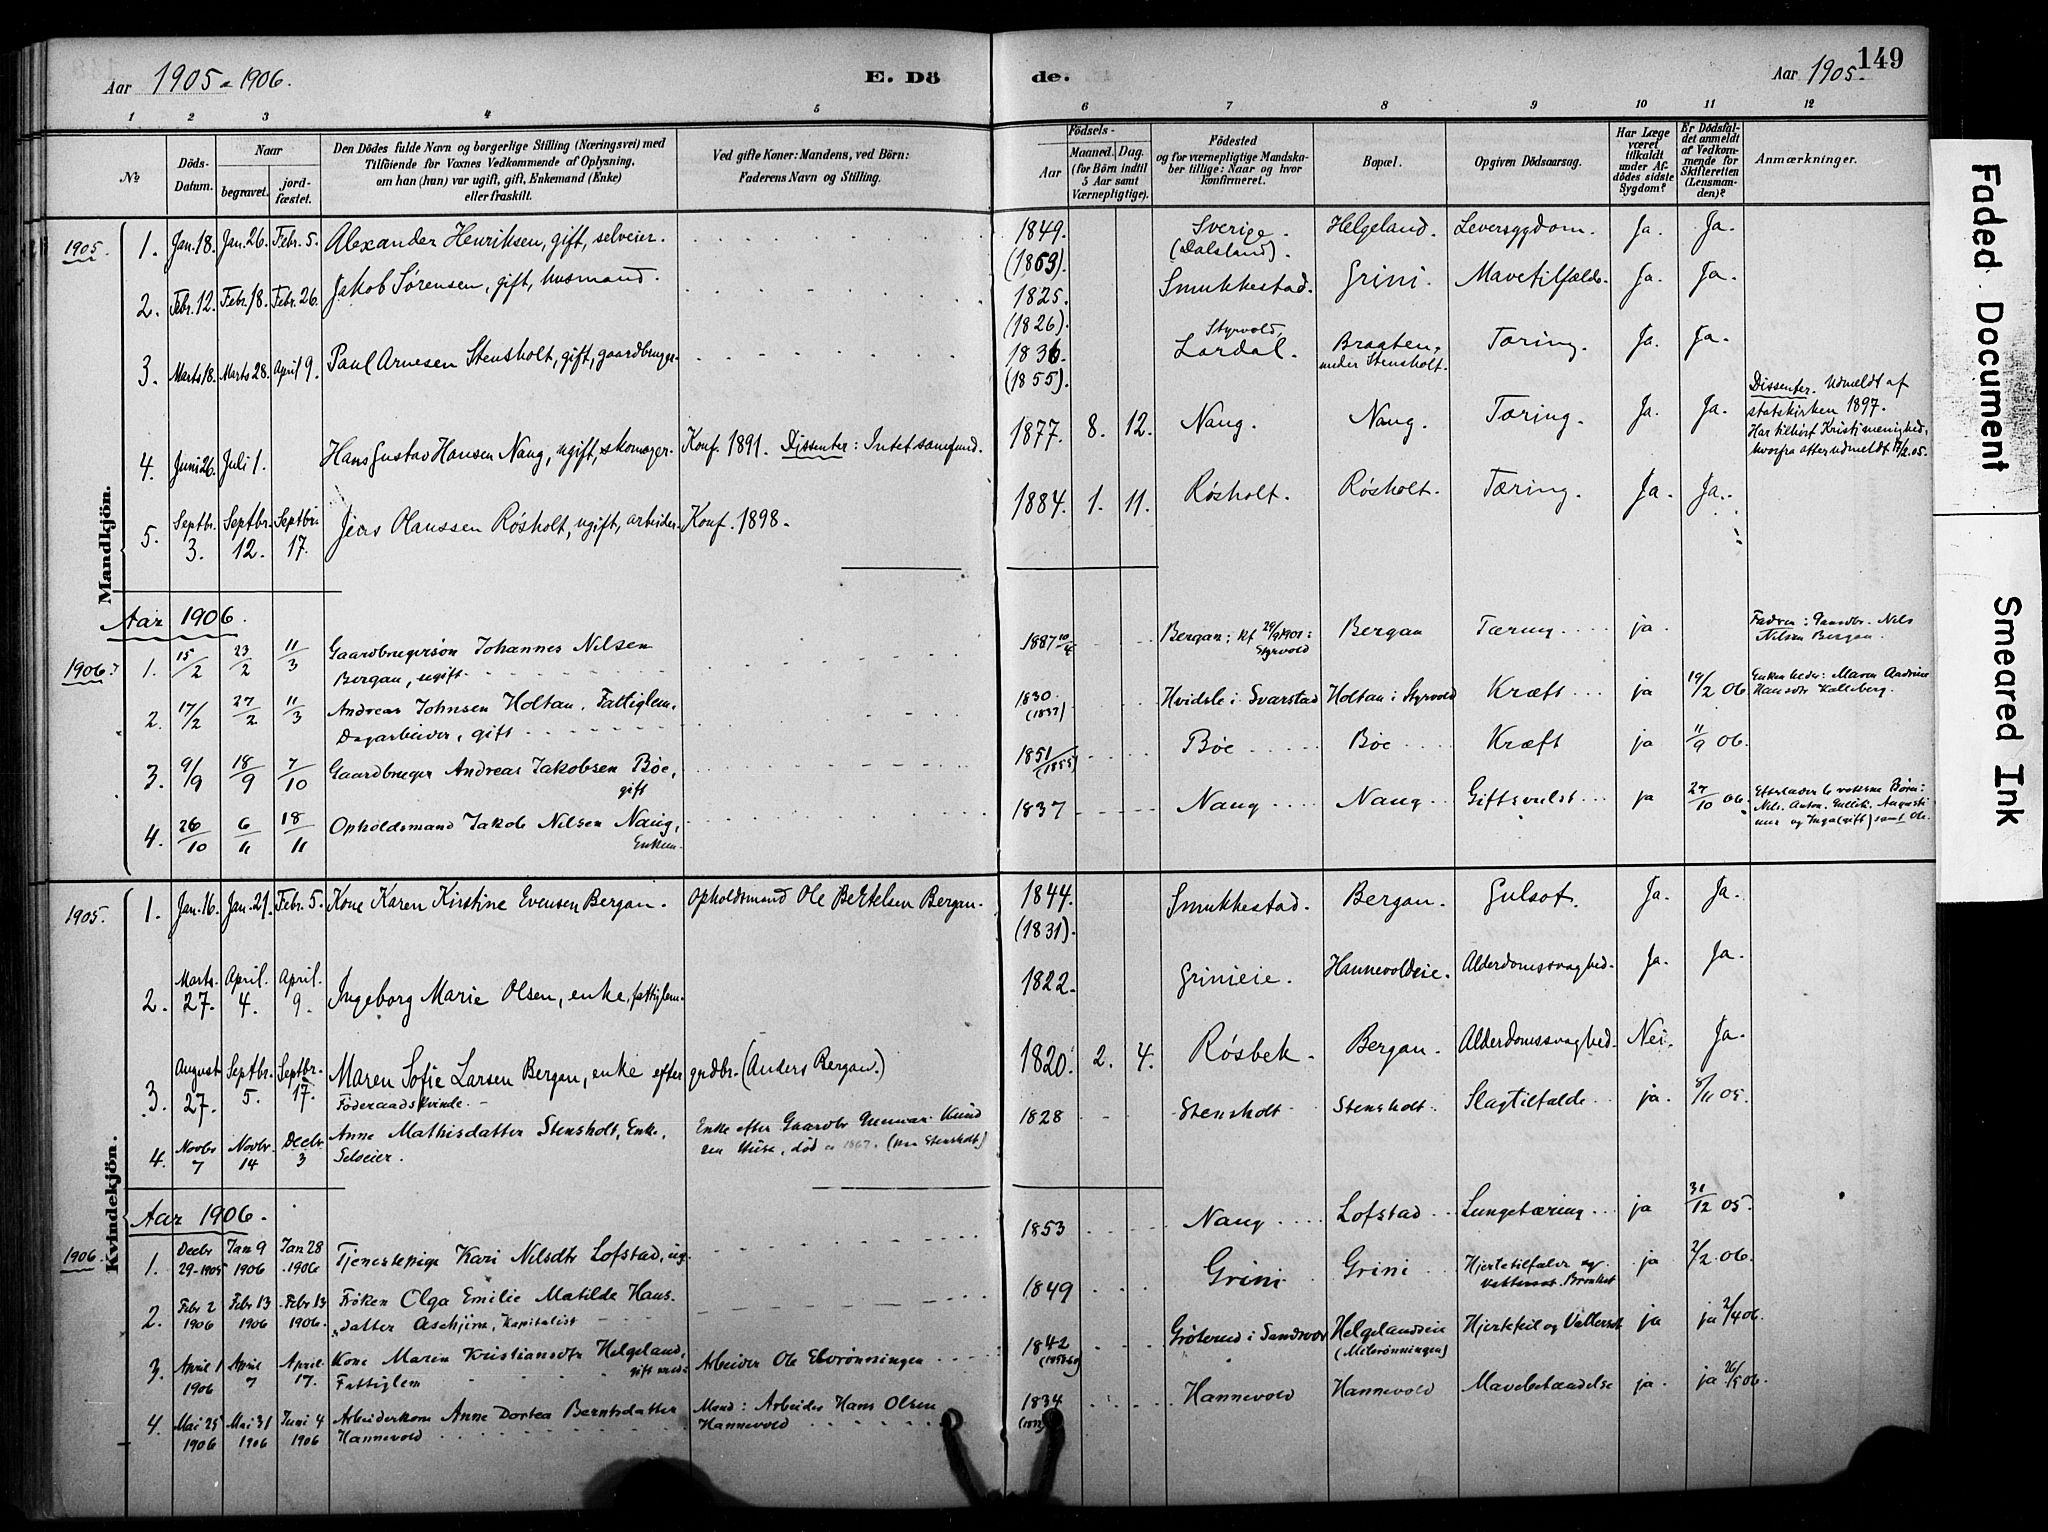 Aar 1905 - 1906.
E. Dö
de.
Aar 1905.
149
1 2 3 4 5 6 7 8 9 10 11 12
No
Döds-
Datum.
Naar
begravet.
jord-
fæstet.
Den Dödes fulde Navn og borgerlige Stilling (Næringsvei) med
Tilföiende for Voxnes Vedkommende af Oplysning,
om han (hun) var ugift, gift, Enkemand (Enke)
eller fraskilt.
Ved gifte Koner: Mandens, ved Börn:
Faderens Navn og Stilling.
Födsels-
Aar
Maaned. Dag.
(for Börn indtil
5 Aar samt
Værnepligtige).
Födested
og for værnepligtige Mandska-
ber tillige: Naar og hvor
konfirmeret.
Bopæl.
Opgiven Dödsaarsag.
Har Læge
været
tilkaldt
under Af-
dödes sidste
Sygdom?
Er Dödsfal-
det anmeldt
af Vedkom-
mende for
Skifteretten
(Lensman-
den)?
Anmærkninger.
Mandkjön.
1905
1. Jan. 18. Jan. 26. Febr. 5. Alexander Henriksen, gift, selveier. 1849. (1853). Sverige. (Dalsland). Helgeland. Leversygdom. Ja. Ja.
2. Febr. 12. Febr. 18. Febr. 26. Jakob Sørensen, gift, husmand. 1825. (1826). Smukkestad. Grini. Mavetilfælde. Ja. Ja.
3. Marts 18. Marts 28. April 9. Paul Arnesen Stensholt, gift, gaardbruger. 1836. (1855). Styrvold, Lardal. Braaten, under Stensholt. Tæring. Ja. Ja.
4. Juni 26. Juli 1. Hans Gustav Hansen Naug, ugift, skomager. Konf. 1891. Dissenter: Intet samfund. 1877. 8. 12. Naug. Naug. Tæring. Ja. Ja.
Dissenter. Udmeldt af
statskirken 1897.
Har tilhört Kristi menighed,
hvorfra atter udmeldt
5. Septbr. 3. Septbr. 12. Septbr. 17. Jens Olaussen Røsholt, ugift, arbeider. Konf. 1898. 1884. 1. 11. Røsholt. Røsholt. Tæring. Ja. Ja.
Aar 1906.
1906
1. 15/2 23/2 11/3 Gaardbrugersøn Johannes Nilsen
Bergan, ugift 1887 10/4 Bergan; kf 29/9 1901: Styrvold Bergan Tæring ja. Fadren: Gaardbr. Nils
Nilsen Bergan.
2. 17/2 27/2 11/3 Andreas Johnsen Holtan. Fattiglem.
Dagarbeider, gift 1830. (1837) Hvidsle i Svarstad Holtan i Styrvold Kræft ja 19/2 06 Enken heder: Maren Andrine
Hansdtr Kalleberg.
3. 9/9 18/9 7/10 Gaardbruger Andreas Jakobsen Bøe,
gift 1851/(1855) Bøe Bøe Kræft ja 11/9 06.
4. 26/10 6/11 18/11 Opholdsmand Jakob Nilsen Naug,
Enkem. 1837 Naug Naug Giftsvulst ja 27/10 06. Efterlader 6 voksne Børn:
Nils, Anton, Gullik, Augusti
nus og Inga (gift) samt Ole.
Kvindekjön.
1905.
1. Jan. 16. Jan. 21. Febr. 5. Kone Karen Kirstine Evensen Bergan. Opholdsmand Ole Bertelsen Bergan. 1844. (1831). Smukkestad. Bergan. Gulsot. Ja. Ja.
2. Marts 27. April. 4. April. 9. Ingeborg Marie Olsen, enke, fattiglem. 1822. Grinieie. Hannevoldeie. Alderdomssvaghed. Ja. Ja.
3. August 27. Septbr. 5. Septbr. 17. Maren Sofie Larsen Bergan, enke efter grdbr. (Anders Bergan.)
Föderaadskvinde. 1820. 2. 4. Røsbek. Bergan. Alderdomssvaghed. Nei. Ja.
4. Novbr 7 Novbr. 14 Decbr 3 Anne Mathisdatter Stensholt, Enke,
Selveier. Enke efter Gaardbr Gunnar Knud
sen Huse, død ca 1867. 1828 Stensholt Stensholt Slagtilfælde ja. 8/11 05.
Aar 1906.
1906.
1. Decbr 29-1905 Jan 9 1906 Jan 28 1906 Tjenestepige Kari Nilsdtr Lofstad, ug. 1853 Naug Lofstad Lungetæring ja 31/12 05.
2. Febr 2 1906 Febr 13 1906 Febr 13 1906. Frøken Olga Emilie Matilde Hans-
datter Aschjem, Kapitalist 1849 Grini Grini Hjertetilfælde og
Vattersot. Bronkit ja 2/2 06.
3. April 1 1906 April 7 April. 17. Kone Maren Kristiansdtr Helgeland,
gift med Fattiglem Arbeider Ole 1842 Grøterud i Sandsvær Helgelandseie Hjertefeil og Vattersot ja ja 2/4 06.
4. Mai 25 1906 Mai 31 1906 Juni 4 1906 Arbeiderkone Anne Dortea Berntsdatter
Hannevold Mand: Arbeider Hans Olsen
Hannevold 1834 Hannevold Hannevold Mavebetændelse ja. ja 26/5 06.
Faded Document
Smeared Ink